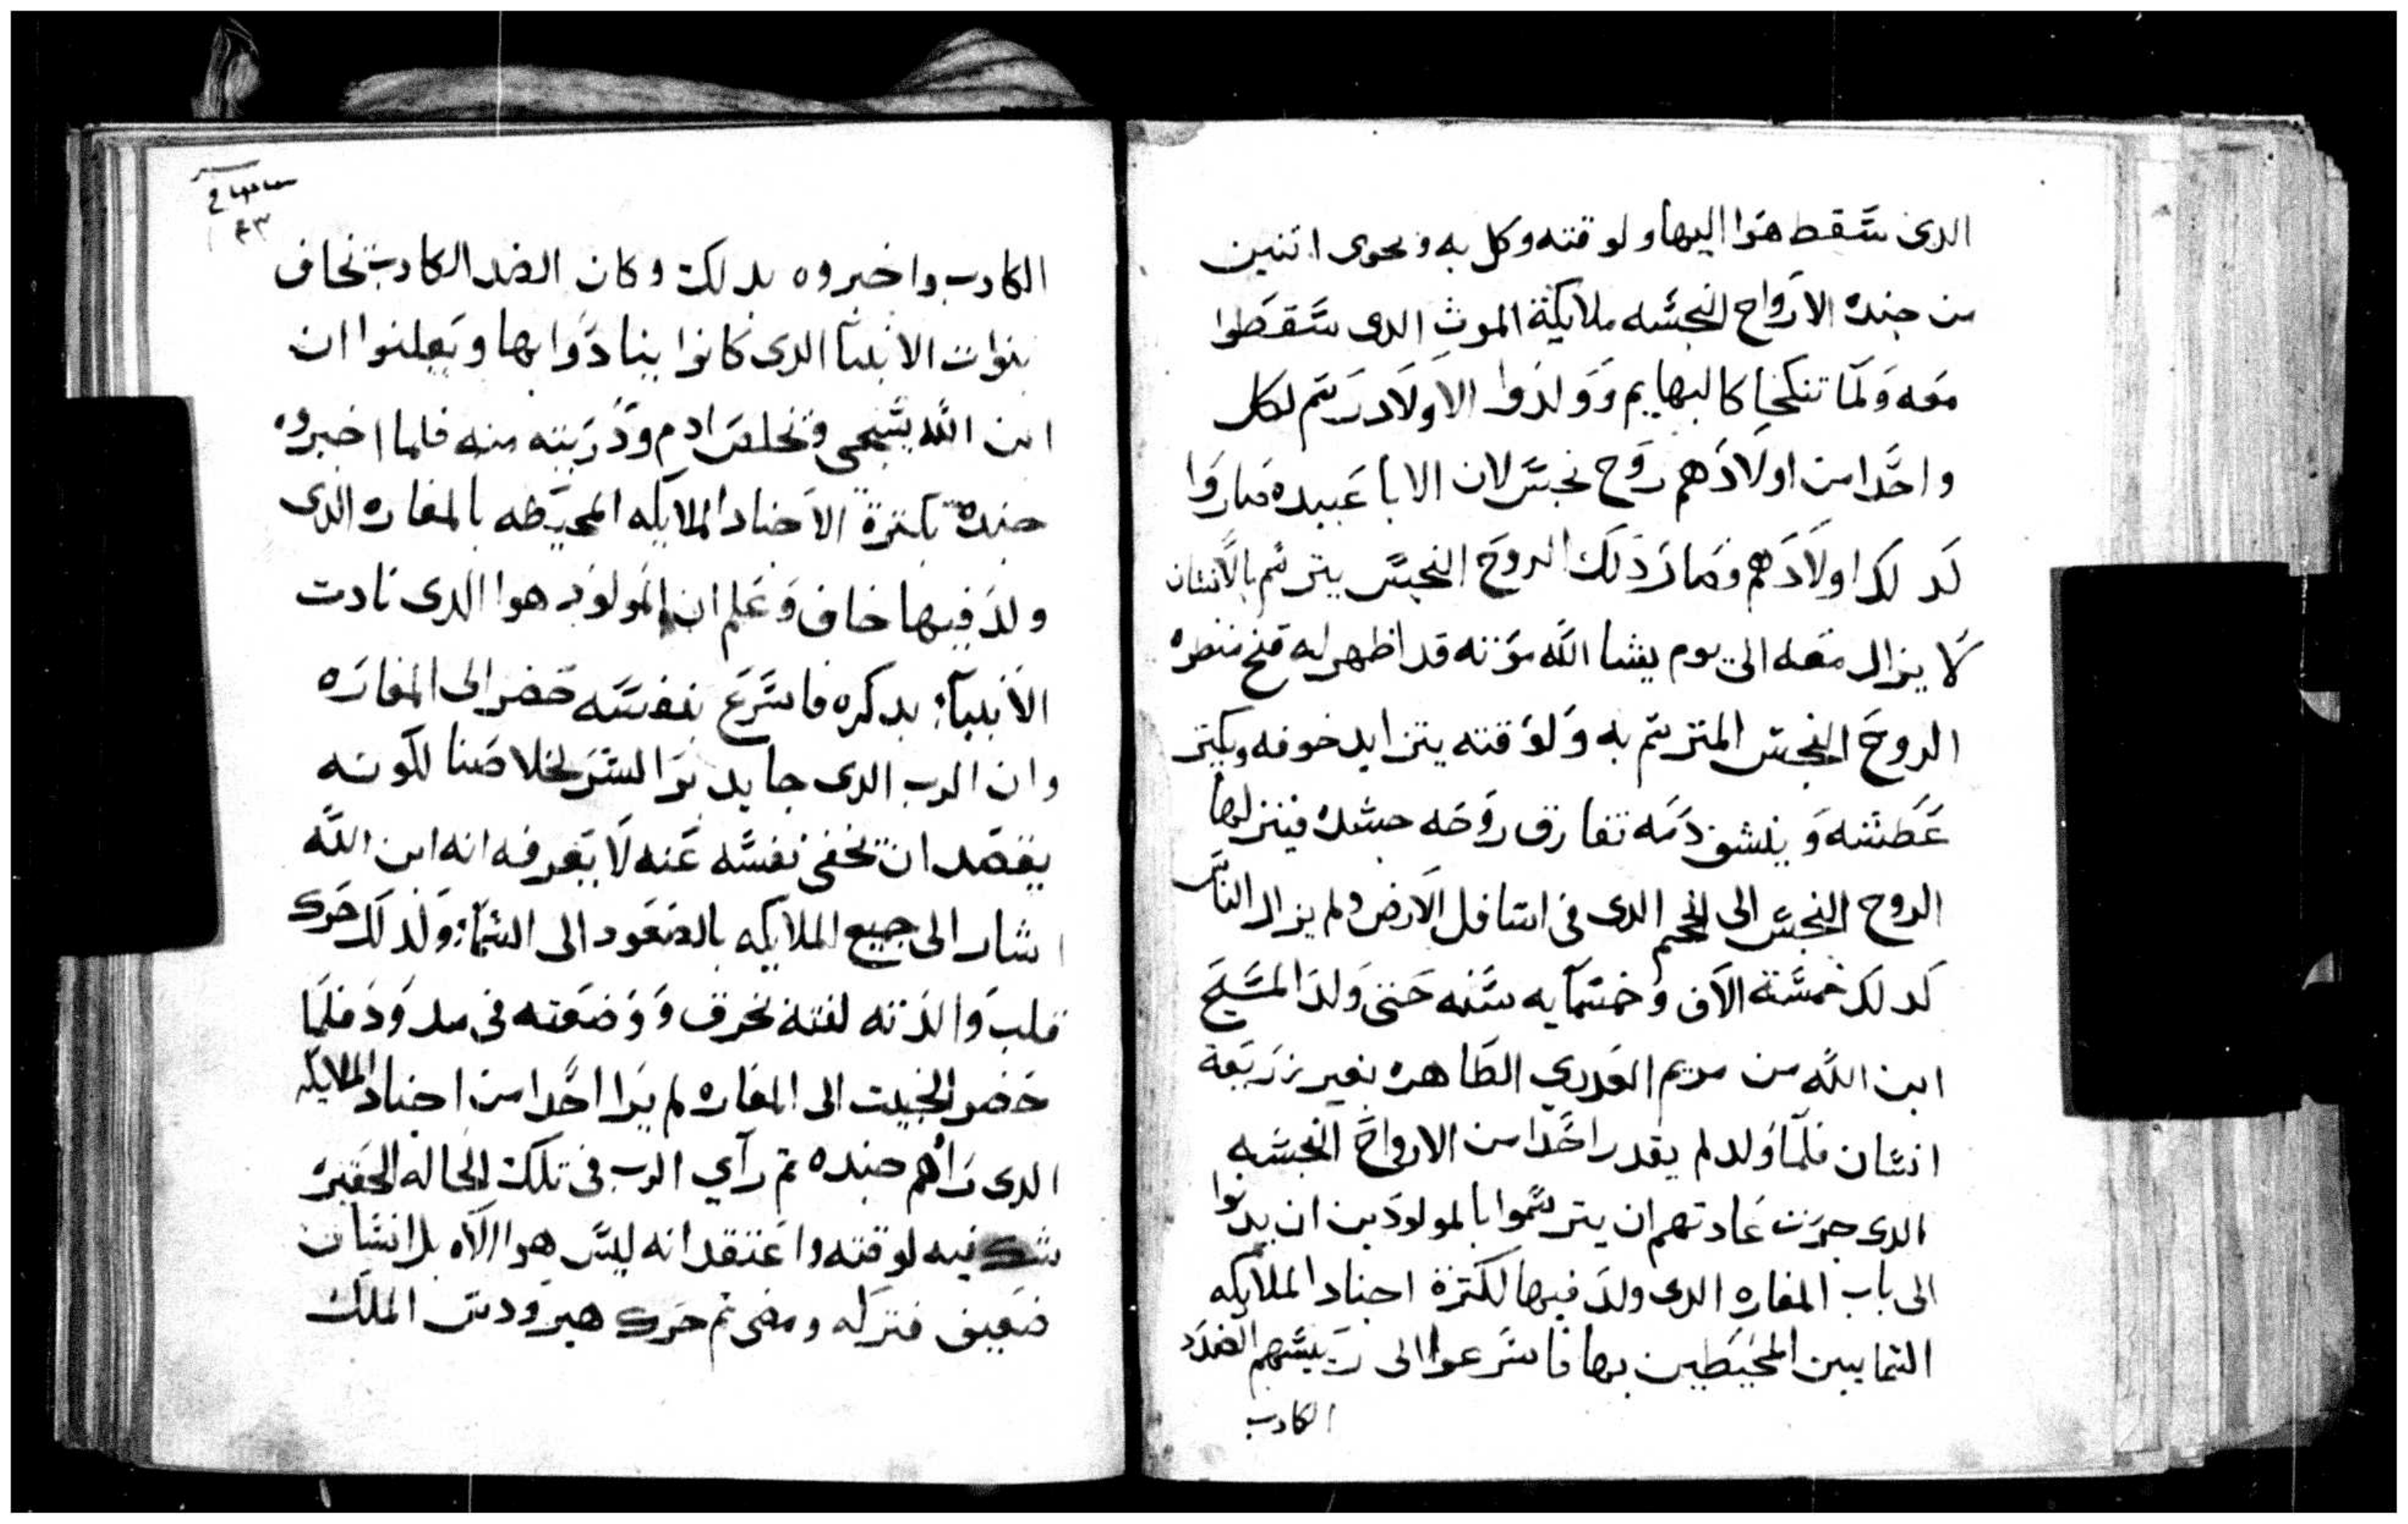 الدى سقط هوا اليها ولوقته وكل به وبحوى اتنين
من جنده الارواح النجسه ملايكة الموت الدى سقطوا
معه ولما تنكحا كالبهايم وولدوا الاولاد رسم لكل
واحدا من اولادهم روح نجس لان الابا عبيده صاروا
كدلك اولادهم وصار دلك الروح النجس يترسم بالانسان
لا يزال معه الى يوم يشا الله موته قد اظهر له قبح منظره
الروح النجس المترسم به ولوقته يتزايد خوفه ويكتر
عطشه وينشف دمه تفارق روحه جسده فينزلها
الروح النجس الى الجحيم الدى فى اسافل الارض ولم يزال الناس
كدلك خمسة الاف وخمسمايه سنه حتى ولد المسيح
ابن الله من مريم العدري الطاهره بغير زريعة
انسان فلما ولد لم يقدر احدا من الارواح النجسه
الدى جرت عادتهم ان يترسموا بالمولودين ان يدنوا
الى باب المغاره الدى ولد فيها لكترة اجناد الملايكه
السمايين المحيطين بها فاسرعوا الى رييسهم الضدد
الكادب
٤٣
الكادب واخبروه بدلك وكان الضد الكادب يخاف
بنوات الانبيا الدى كانوا ينادوا بها ويعلنوا ان
ابن الله يتجى ويخلص ادم ودريته منه فلما اخبروه
جنده بكترة الاجناد الملايكه المحيطه بالمغاره الدى
ولد فيها خاف وعلم ان المولود هوا الدى نادت
الانبيا بدكره فاسرع بنفسه حضر الى المغاره
وان الرب الدى جا يدبرا السر لخلاصنا لكونه
يقصد ان يخفى نفسه عنه لا يعرفه انه ابن الله
اشار الى جميع الملايكه بالصعود الى السما ولدلك حرك
قلب والدته لفته بخرق ووضعته فى مدود فلما
حضر الخبيت الى المغاره لم يرا احدا من اجناد الملايكه
الدى راهم جنده تم رآي الرب فى تلك الحاله الحقيره
شك فيه لوقته واعتقد انه ليس هوا الاه بل انسان
ضعيف فتركه ومضى تم حرك هيرودس الملك